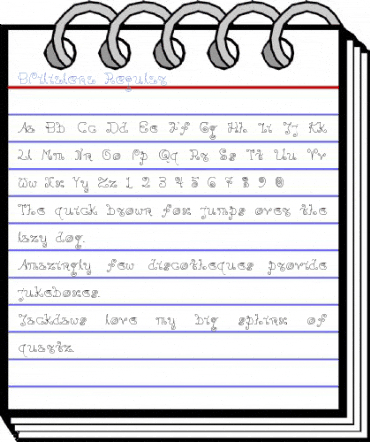 BPdiisleons Regular
Aa Bb Cc Dd Ee Ff Gg Hh Ii Jj Kk
Ll Mm Nn Oo Pp Qq Rr Ss Tt Uu Vv
Ww Xx Yy Zz 1 2 3 4 5 6 7 8 9 0
The quick brown fox jumps over the
lazy dog.
Amazingly few discotheques provide
jukeboxes.
Jackdaws love my big sphinx of
quartz.